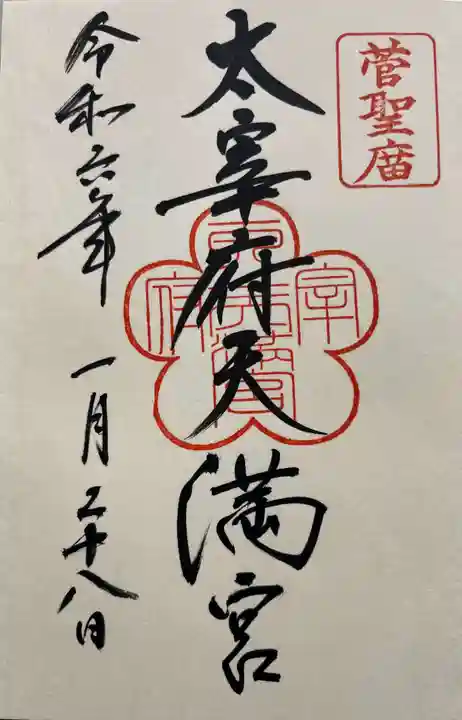 菅聖庿
太宰府天満宮
令和六年一月二十八日